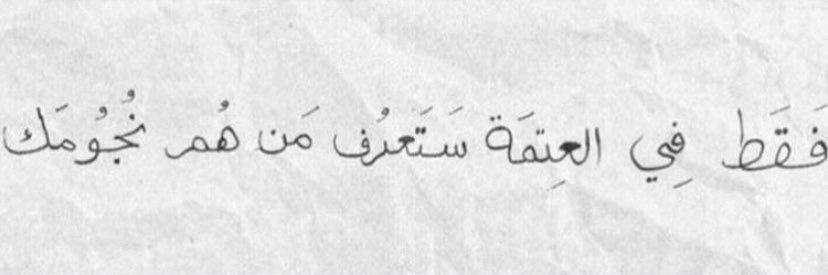 فَقَط فِي العِتمَة سَتَعرُف مَن هُم نُجُومَك